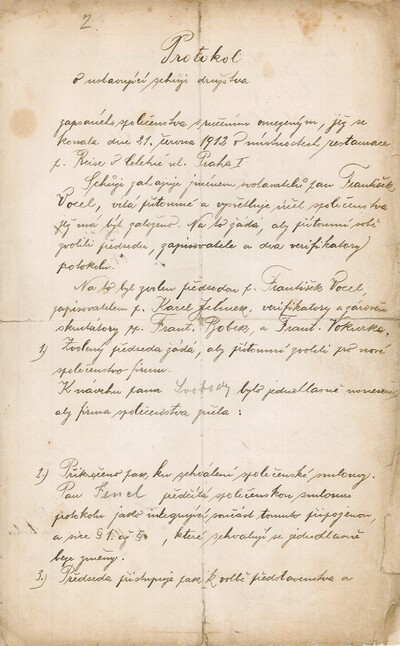 2.
Protokol
o ustavující schůzi družstva
zapsaného společenstva s ručením omezeným, jež se
konala dne 21. června 1912 v místnostech restaurace
p. Reise v Celetné ul. Praha I
Schůzi zahajuje jménem svolavatelů pan František
Vocel, vítá přítomné a vysvětluje účel společenstva
jež má být založeno. Na to žádá, aby přítomní sobě
zvolili předsedu, zapisovatele a dva verifikatory
protokolu.
Na to byl zvolen předsedou p. František Vocel,
zapisovatelem p. Karel Jelinek, verifikatory a zároveň
skrutatory pp. Frant. Bobek, a Frant. Vokurka.
1.) Zvolený předseda žádá, aby přítomní zvolili pro nové
společenstvo firmu.
K návrhu pana Svobody bylo jednohlasně usneseno
aby firma společenstva zněla:
2.) Přikročeno pak ku schválení společenské smlouvy.
Pan Fencl předčítá společenskou smlouvu
protokolu jako integrující součást tomuto připojenou,
a sice § 1. až § , které schvalují se jednohlasně
beze změny.
3.) Předseda přistupuje pak k volbě představenstva a